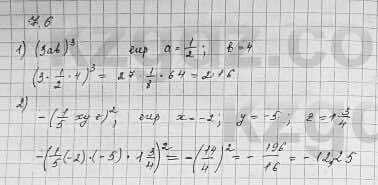 7.6
1) (3ab)³ егер a = 1/2; b = 4
(3·1/2·4)³ = 27·1/8·64 = 216
2)
-(1/5 xyz)²; егер x = -2; y = -5; z = 1 3/4
-(1/5·(-2)·(-5)·1 3/4)² = -(14/4)² = -196/16 = -12,25